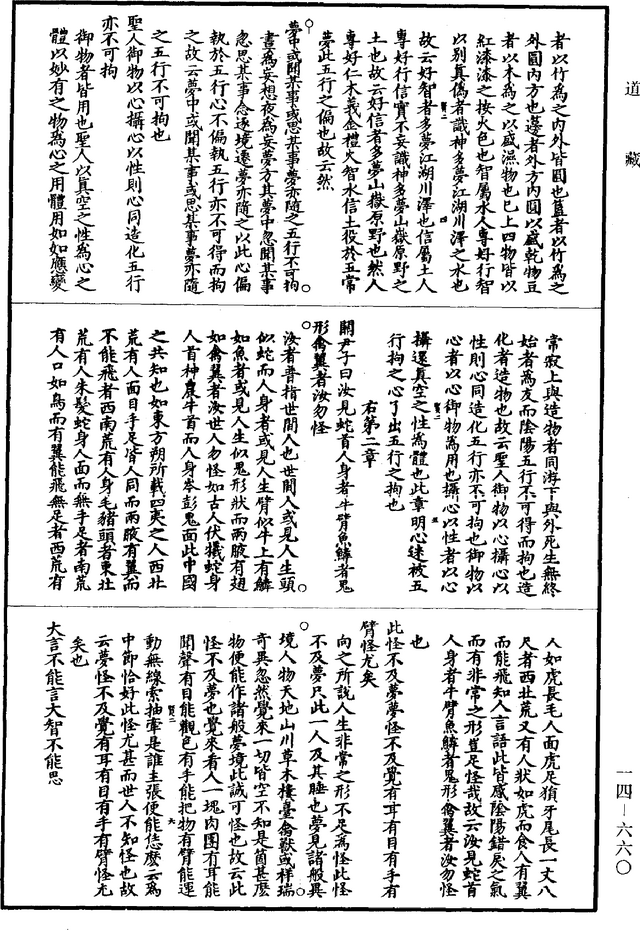 道藏
者以竹為之内外皆圓也簠者以竹為之
外圓内方也邊者外方内圓以盛乾物豆
者以木為之以盛濕物也已上四物皆以
紅漆漆之按火色也智屬水人專好行智
以別真偽者識神多夢江湖川澤之水也
故云好智者多夢江湖川澤也信屬土人
專好行信實不妄識神多夢山嶽原野之
土也故云好信者多夢山嶽原野也然人
專好仁木義金禮火智水信土役於五常
夢此五行之偏也故云然
夢中或聞某事或思某事夢亦隨之五行不可拘
晝為妄想夜為妄夢方其夢中忽聞某事
忽思某事念逐境遷夢亦隨之以此心偏
執於五行心不偏執五行亦不可得而拘
之故云夢中或聞某事或思某事夢亦隨
之五行不可拘也
聖人御物以心攝心以性則心同造化五行
亦不可拘
御物者皆用也聖人以真空之性為心之
體以妙有之物為心之用體用如如應變
常寂上與造物者同游下與外死生無終
始者為友而陰陽五行不可得而拘也造
化者造物也故云聖人御物以心攝心以
性則心同造化五行亦不可拘也御物以
心者以心御物為用也攝心以性者以心
攝還真空之性為體也此章明心迷被五
行拘之心了出五行之拘也
右第二章
關尹子曰汝見蛇首人身者牛臂魚鱗者鬼
形禽翼者汝勿怪
汝者普指世間人也世間人或見人生頭
似蛇而人身者或見人生臂似牛上有鱗
如魚者或見人生似鬼形狀而兩腋有翅
如禽翼者汝世人勿怪如古人伏犧蛇身
人首神農牛首而人身岑彭鬼面此中國
之共知也如東方朔所載四夷之人西北
荒有人面目手足皆人同而兩腋有翼而
不能飛者西南荒有人身毛豬頭者東北
荒有人朱髮蛇身人面而無手足者南荒
有人口如鳥而有翼能飛無足者西荒有
人如虎長毛人面虎足獠牙尾長一丈八
尺者西北荒又有人狀如虎而食人有翼
而能飛知人言語此皆感陰陽錯戾之氣
而有非常之形豈足怪哉故云汝見蛇首
人身者牛臂魚鱗者鬼形禽翼者汝勿怪
也
此怪不及夢夢怪不及覺有耳有目有手有
臂怪尤矣
向之所說人生非常之形不足為怪此怪
不及夢只此一人及其睡也夢見諸般異
境人物天地山川草木樓臺禽獸或祥瑞
奇異忽然覺來一切皆空不知是箇甚麼
物便能作諸般夢境此誠可怪也故云此
怪不及夢也覺來看人一塊肉團有耳能
聞聲有目能觀色有手能把物有臂能運
動無線索抽牽是誰主張便能恁麼云為
中節恰好此怪尤甚而世人不知怪也故
云夢怪不及覺有耳有目有手有臂怪尤
矣也
大言不能言大智不能思
一四—六六〇